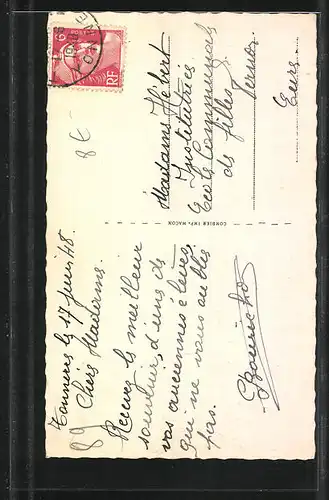 Tannerre le 17 juin 48.
89 Chère Madame.
Recevez le meilleur
souvenir, d'une de
vos anciennes élèves,
qui ne vous oublie
pas.
COMBIER IMP. MACON
8€
6
RF
Madame Hébert
Institutrice
Ecole Communale
de filles
Eure